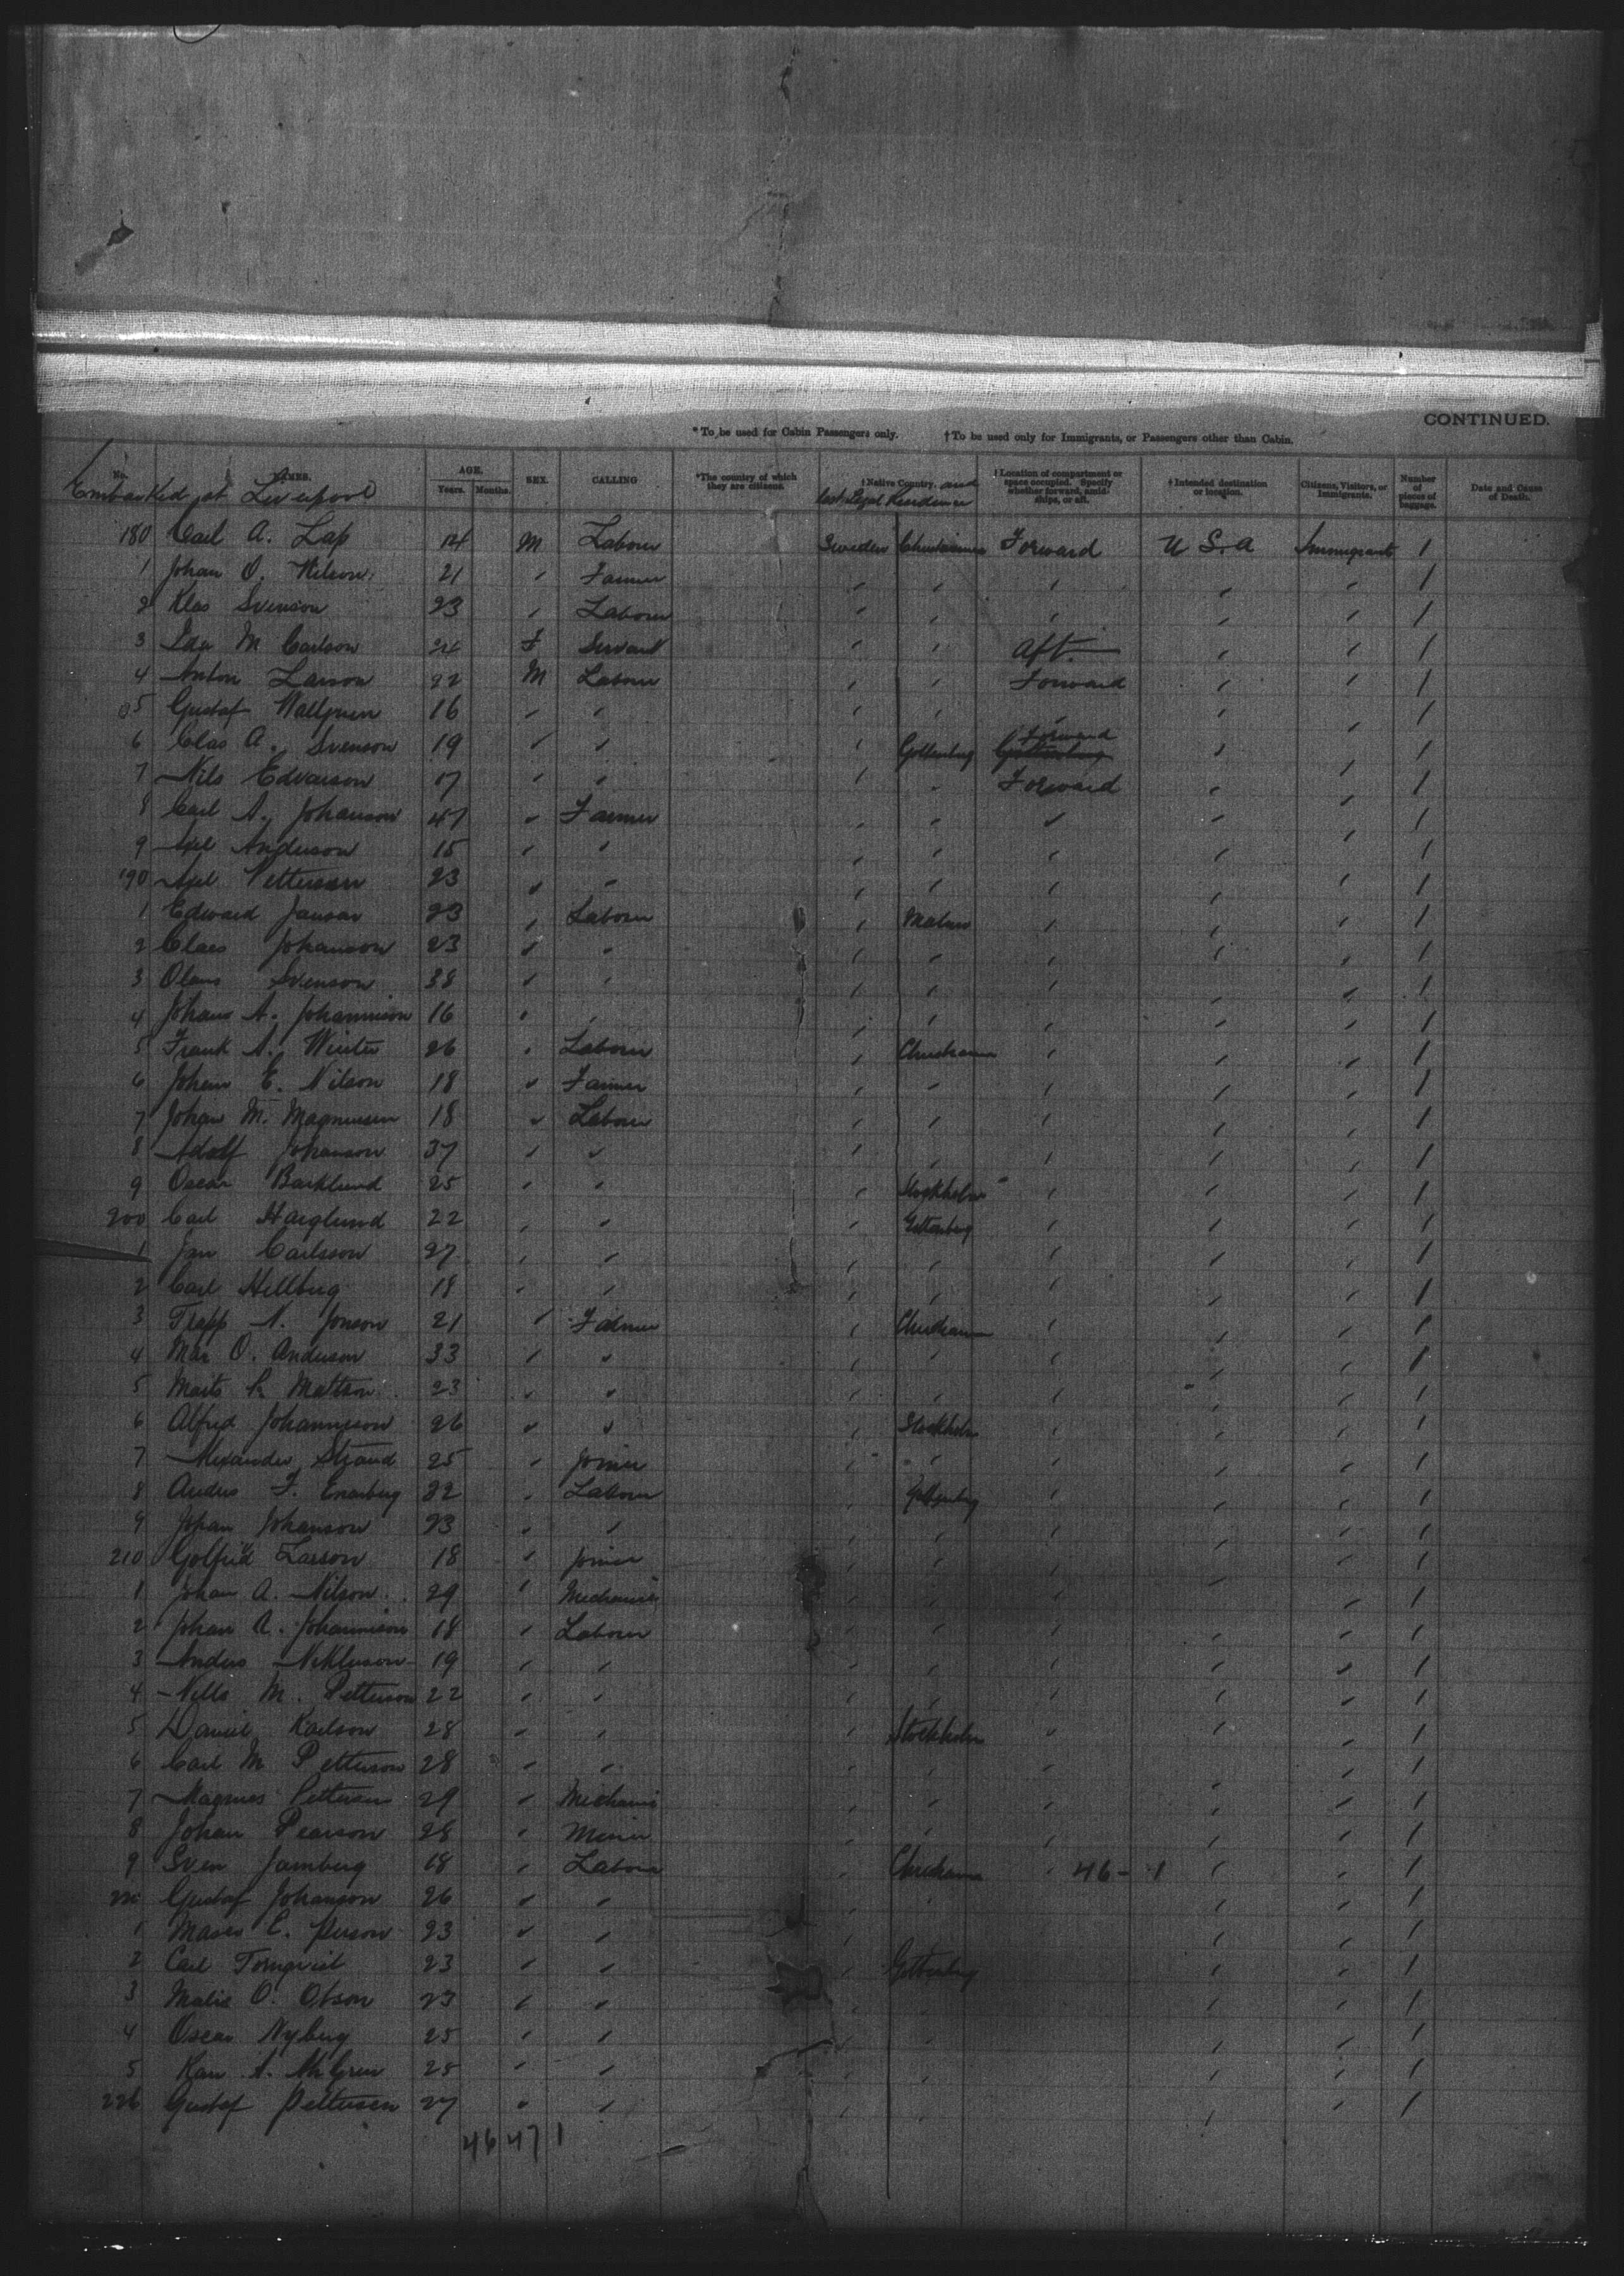 CONTINUED.
* To be used for Cabin Passengers only. † To be used only for Immigrants, or Passengers other than Cabin.
No. NAMES. AGE. Years. Months. SEX. CALLING *The country of which they are citizens. †Native Country. and last Legal Residence †Location of compartment or space occupied. Specify whether forward, amidships, or aft. †Intended destination or location. Citizens, Visitors, or Immigrants. Number of pieces of baggage. Date and Cause of Death.
Embarked at Liverpool
180 Carl A. Lap 24 M Labourer Sweden Christiania Forward U S. A Immigrant 1
1 Johan O. Nilson 21 " Farmer " " " " " 1
2 Klas Svenson 23 " Labourer " " " " " 1
3 Ida M Carlson 24 F Servant " " Aft. " " 1
4 Anton Larson 22 M Labourer " " Forward " " 1
5 Gustaf Wallgren 16 " " " " " " " 1
6 Clas A. Svenson 19 " " " Gottenberg Forward " " 1
7 Nils Edvarson 17 " " " " Forward " " 1
8 Carl A. Johanson 47 " Farmer " " " " " 1
9 Axel Anderson 15 " " " " " " " 1
190 Axel Petterson 23 " " " " " " " 1
1 Edward Janson 23 " Labourer " Malmo " " " 1
2 Claes Johanson 23 " " " " " " " 1
3 Olaus Svenson 38 " " " " " " " 1
4 Johans A. Johannison 16 " " " " " " " 1
5 Frank A. Winter 26 " Labourer " Christiania " " " 1
6 Johan E. Nilson 18 " Farmer " " " " " 1
7 Johan M. Magnusen 18 " Labourer " " " " " 1
8 Adolf Johanson 37 " " " " " " " 1
9 Oscar Barklund 25 " " " Stockholm " " " 1
200 Carl Haglund 22 " " " Gottenberg " " " 1
1 Jan Carlsson 27 " " " " " " " 1
2 Carl Hellberg 18 " " " " " " " 1
3 Trapp N. Jonson 21 " Farmer " Christiania " " " 1
4 Mar O. Anderson 33 " " " " " " " 1
5 Matts Mattson 23 " " " " " " " 1
6 Alfred Johannison 26 " " " Stockholm " " " 1
7 Alexander Strand 25 " Joiner " " " " " 1
8 Anders F. Enerberg 32 " Labourer " Gottenberg " " " 1
9 Johan Johanson 23 " " " " " " " 1
210 Golfrid Larson 18 " Joiner " " " " " 1
1 Johan A. Nilson 29 " Mechanic " " " " " 1
2 Johan A. Johannison 18 " Labourer " " " " " 1
3 Anders Nikleson 19 " " " " " " " 1
4 Nells M. Petterson 22 " " " " " " " 1
5 Daniel Karlson 28 " " " Stockholm " " " 1
6 Carl M Petterson 28 " " " " " " " 1
7 Magnus Petterson 29 " Mechanic " " " " " 1
8 Johan Pearson 28 " Miner " " " " " 1
9 Sven Jamberg 18 " Labourer " Christiania " 46 - 1 " " 1
220 Gustaf Johanson 26 " " " " " " 1
1 E. Person 23 " " " " " " 1
2 Carl Tornqvist 23 " " " Gottenberg " " 1
3 Malis O. Olson 23 " " " " " " 1
4 Oscar Nyberg 25 " " " " " " 1
5 A. Ahlgren 25 " " " " " " 1
226 Gustaf Pettersen 27 " " " " " " 1
46 47 1